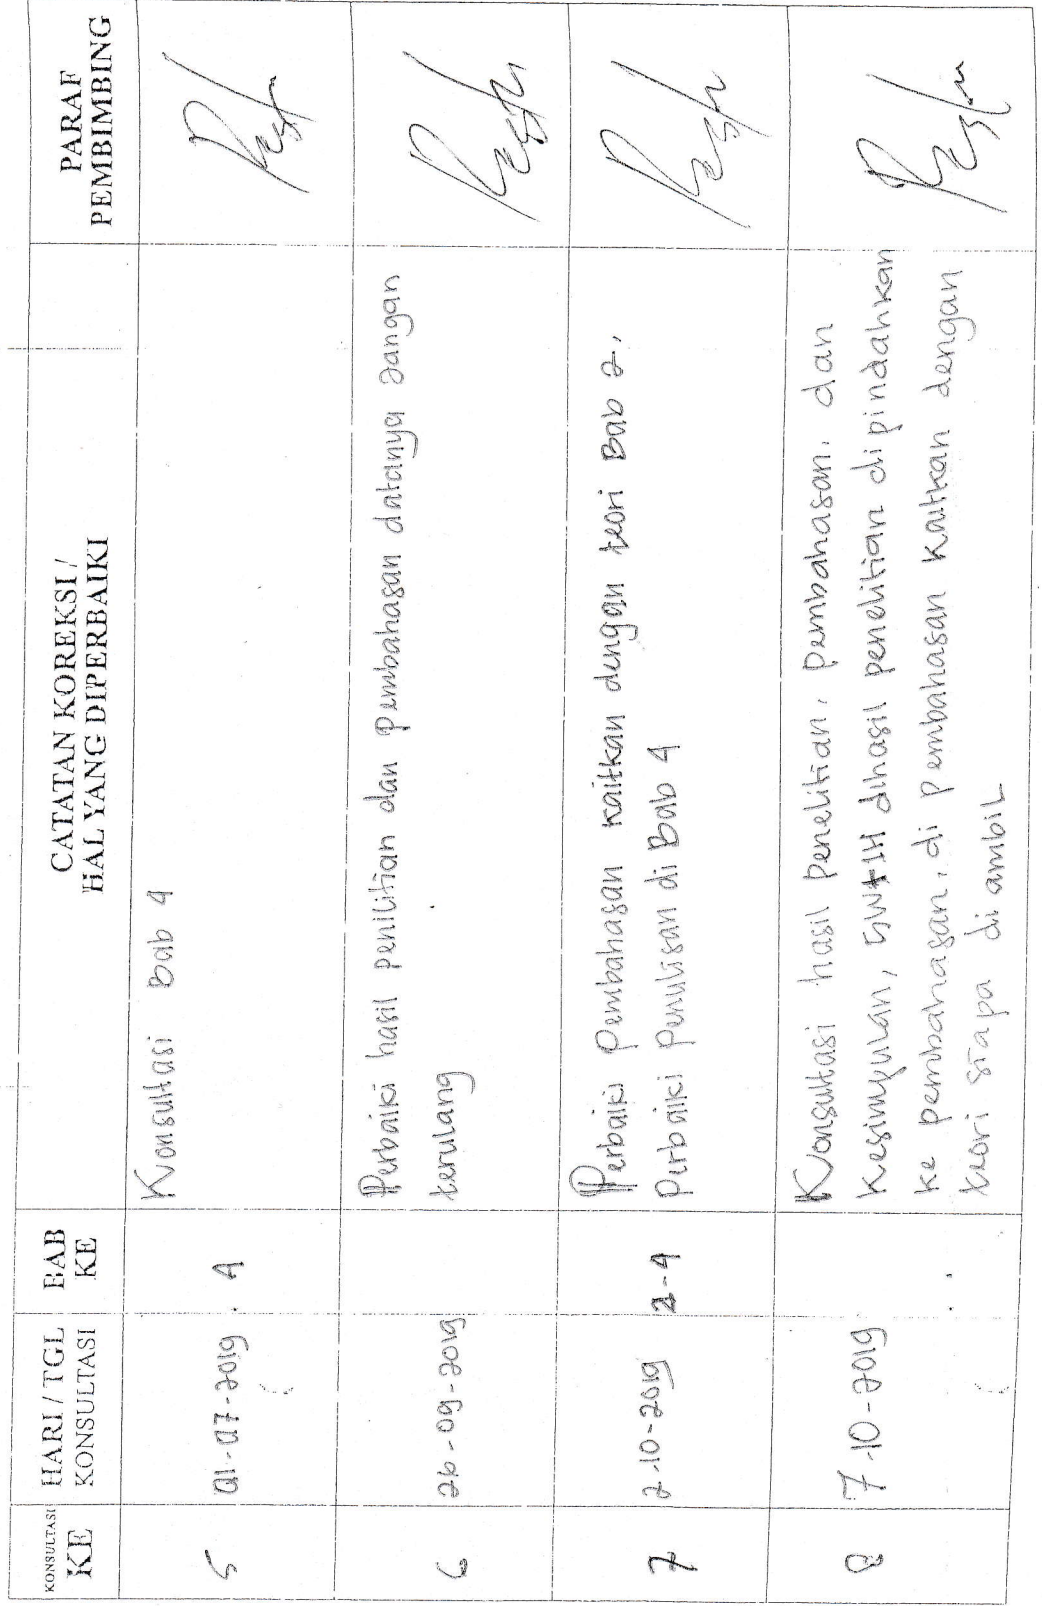 KONSULTASI KE
HARI / TGL KONSULTASI
BAB KE
CATATAN KOREKSI /
HAL YANG DIPERBAIKI
PARAF PEMBIMBING
5
01-07-2019
4
Konsultasi Bab 4
6
26-09-2019
Perbaiki hasil penilitian dan pembahasan datanya Jangan
terulang
7
2-10-2019
2-4
Perbaiki Pembahasan kaitkan dengan teori Bab 2,
Perbaiki Penulisan di Bab 4
8
7-10-2019
Konsultasi hasil Penelitian, Pembahasan, dan
Kesimpulan, 5W+1H dihasil penelitian di pindahkan
ke pembahasan, di pembahasan kaitkan dengan
teori siapa di ambil